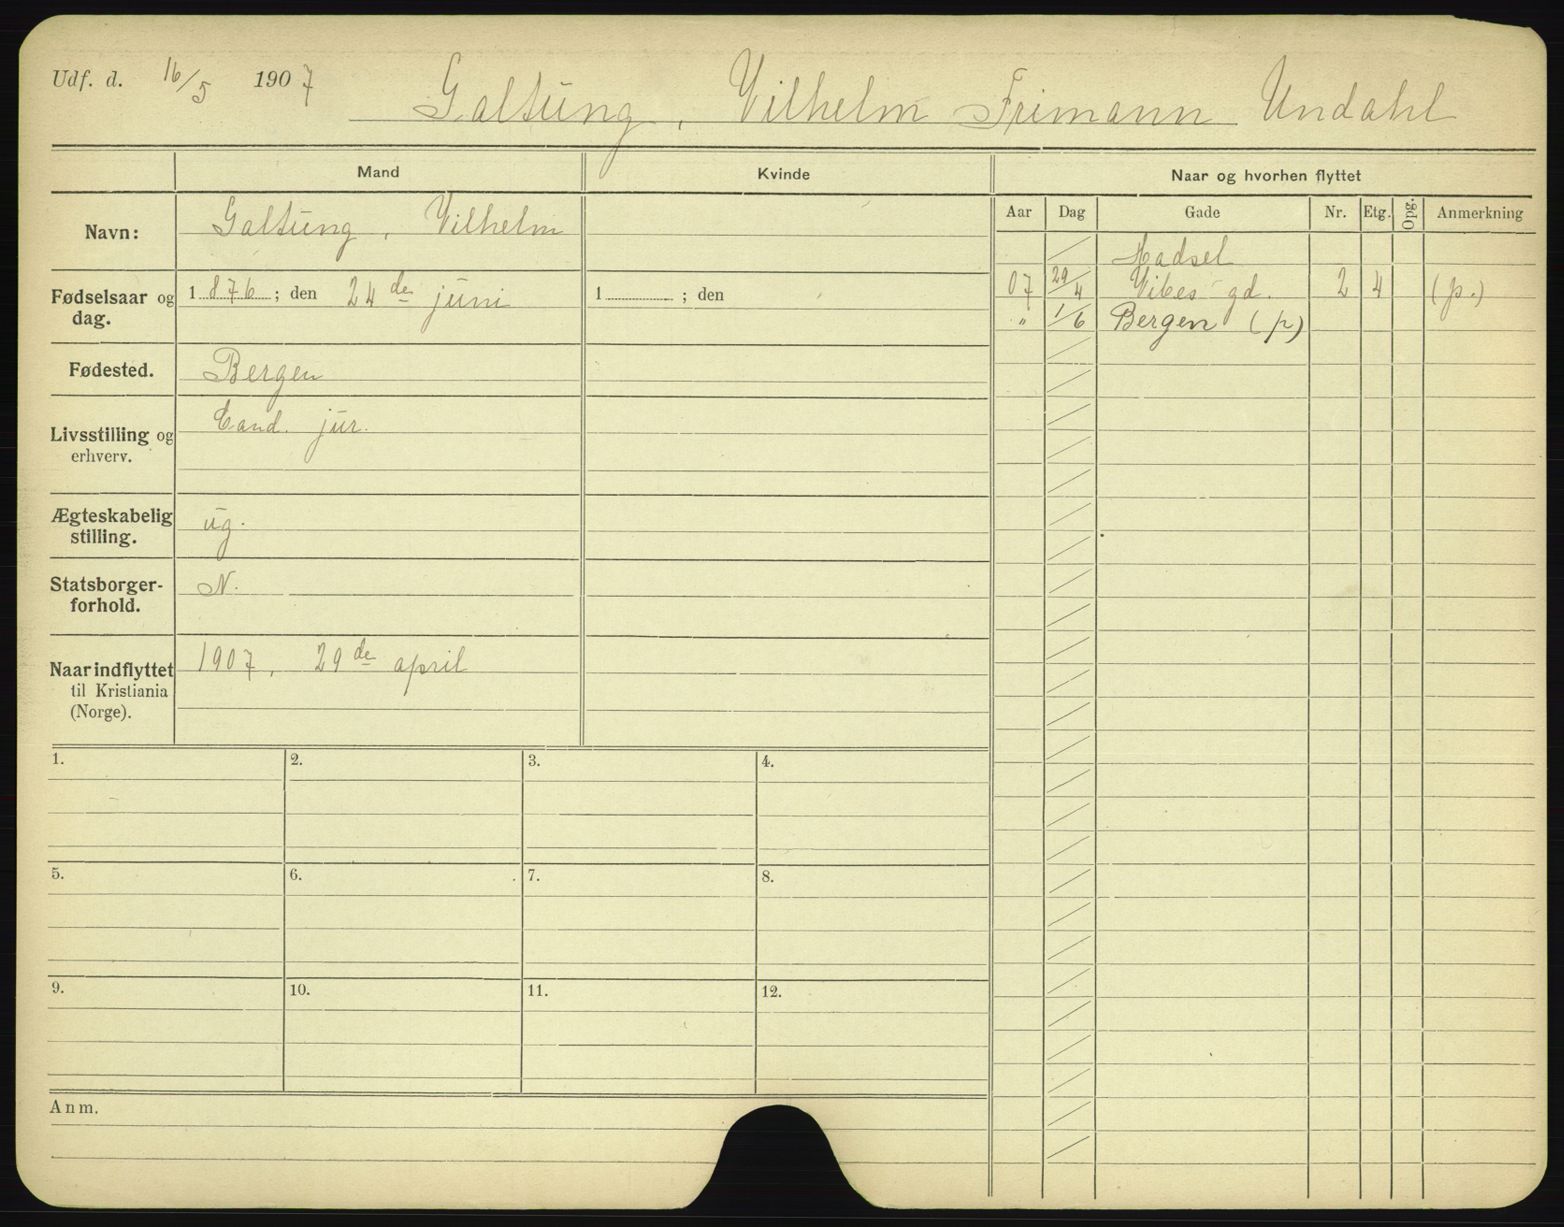 Udf. d. 16/5 1907 Galtung, Vilhelm Frimann Undahl
Mand Kvinde Naar og hvorhen flyttet
Aar Dag Gade Nr. Etg. Opg. Anmerkning
Navn: Galtung, Vilhelm
Hadsel
Fødselsaar og dag. 1876; den 24de juni 1 ; den
07 29/4 Vibes gd. 2 4 (p.)
" 1/6 Bergen (p)
Fødested. Bergen
Livsstilling og erhverv. Cand. jur.
Ægteskabelig stilling. ug.
Statsborger-
forhold. N.
Naar indflyttet
til Kristiania
(Norge). 1907, 29de april
1. 2. 3. 4.
5. 6. 7. 8.
9. 10. 11. 12.
Anm.